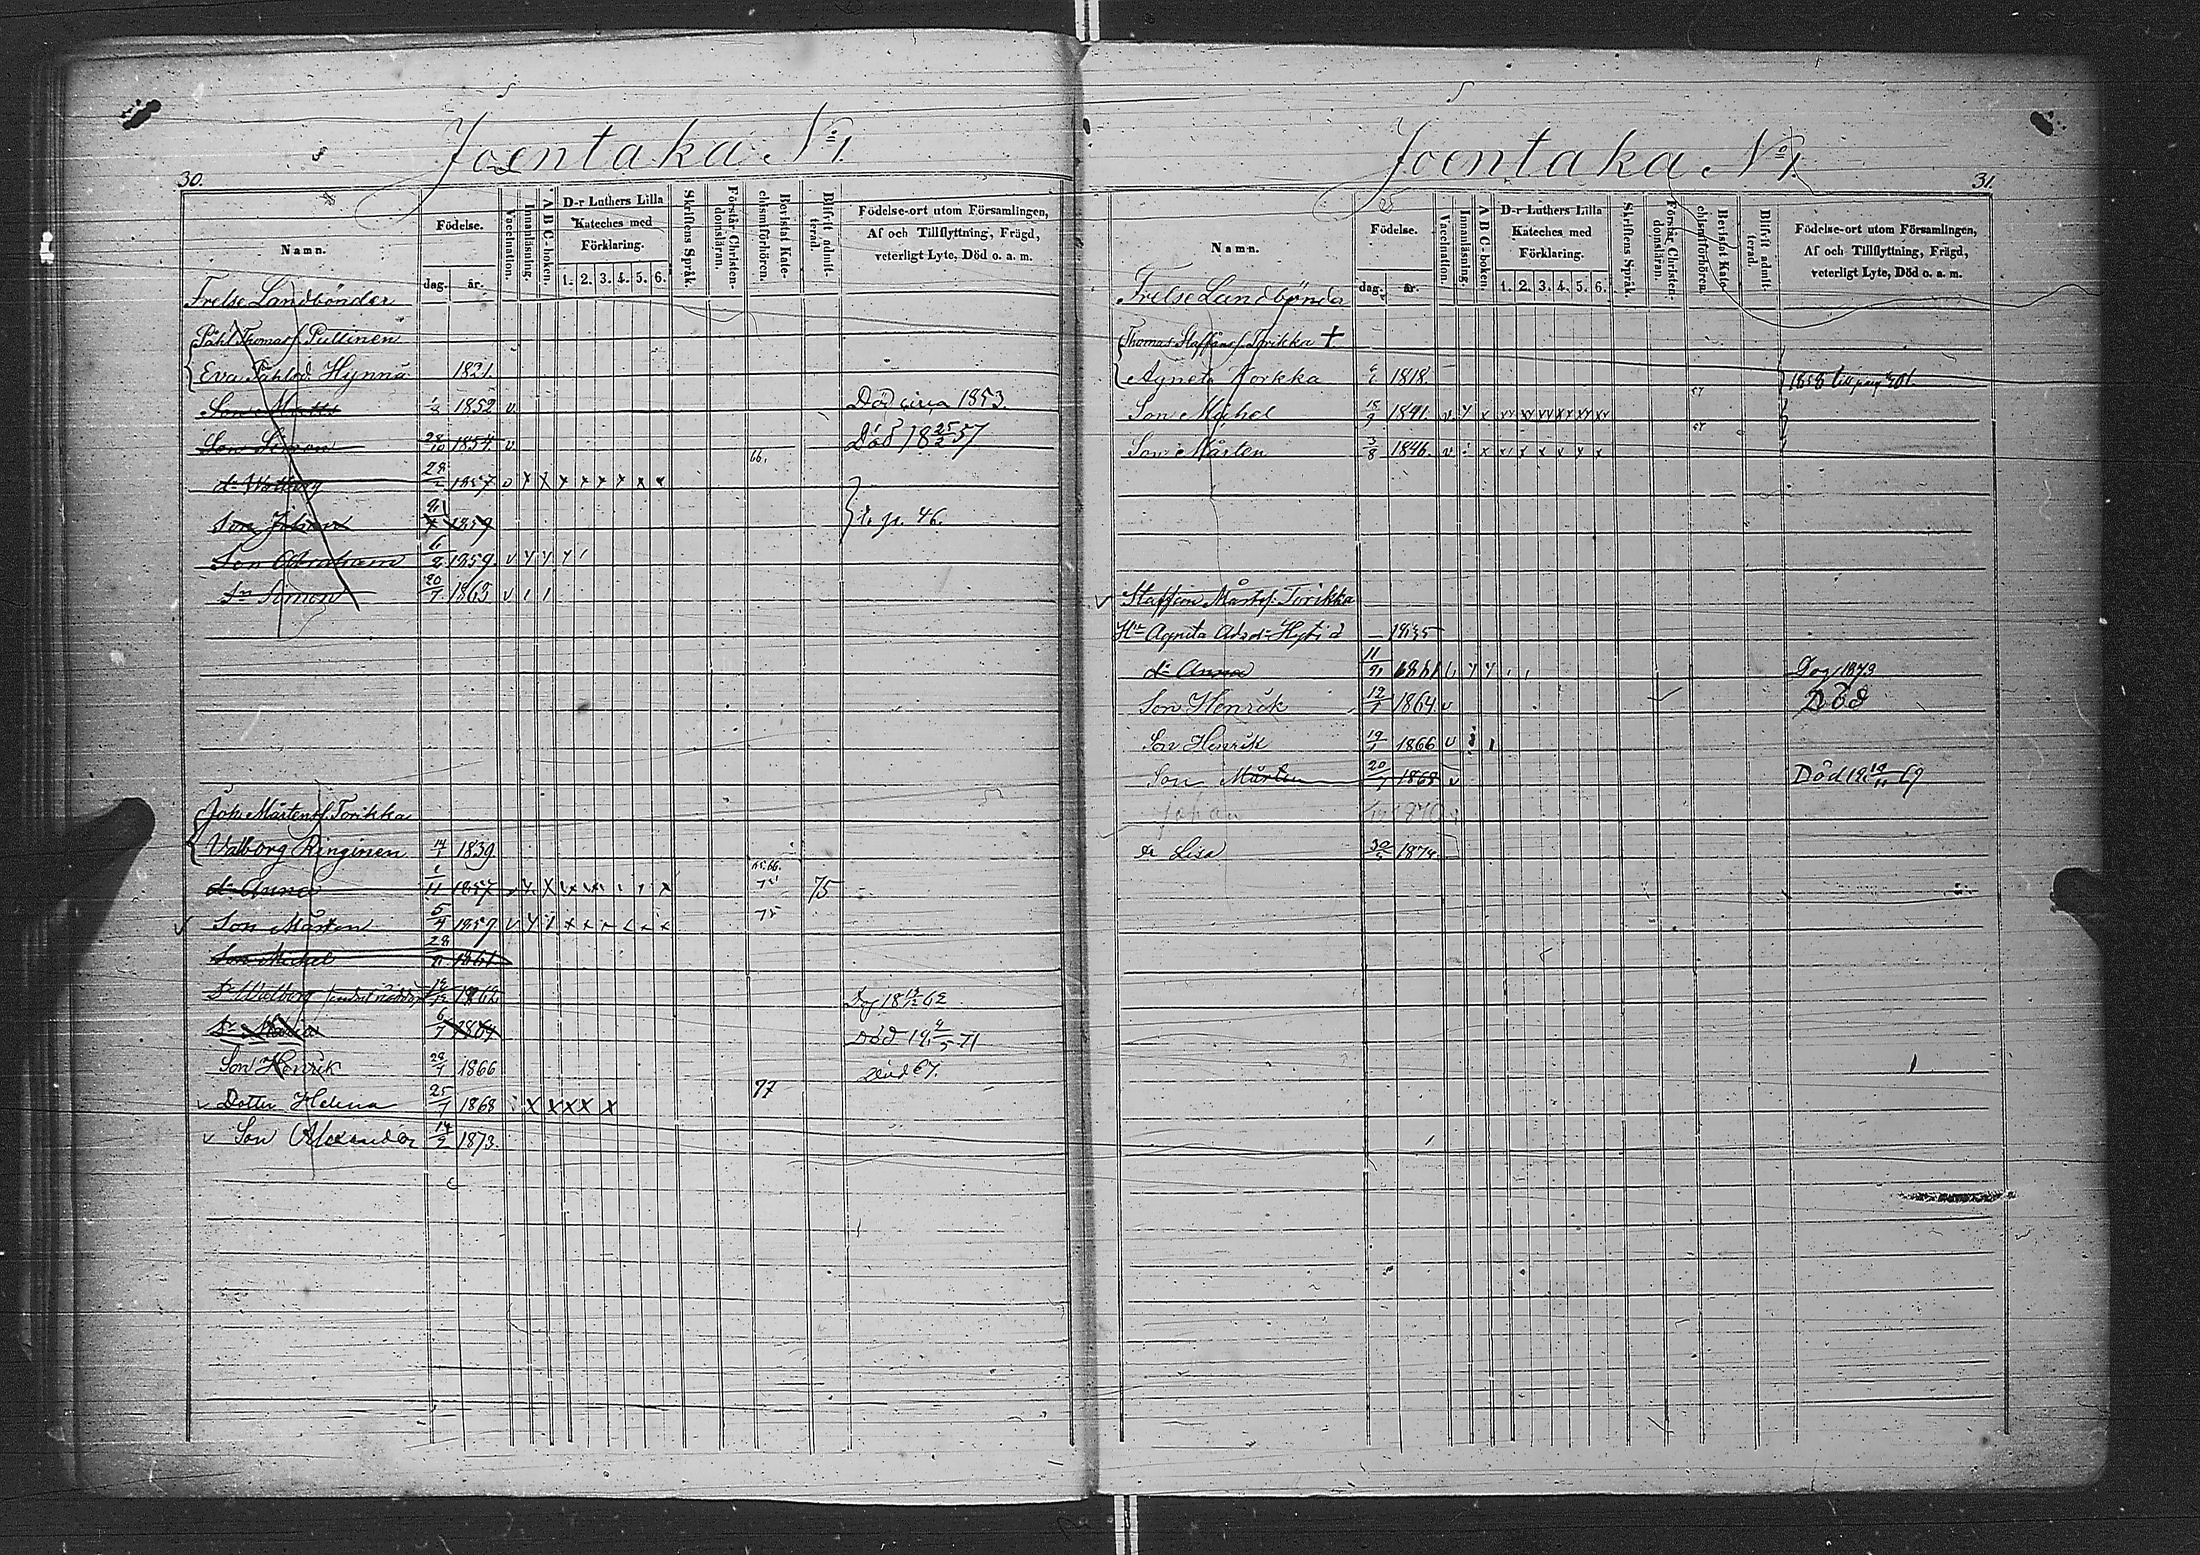 30.
Joentaka No 1.
Namn.
Födelse.
dag. år.
Vaccination.
Innanläsning.
A B C-boken.
D-r Luthers Lilla Kateches med Förklaring.
1. 2. 3. 4. 5. 6.
Skriftens Språk.
Förstår Christendomsläran.
Bevistat Katechismiförhören.
Blifvit admitterad.
Födelse-ort utom Församlingen,
Af och Tillflyttning, Frägd,
veterligt Lyte, Död o. a. m.
Frelse Landbönder
Påhl Thomass. Pullinen
Eva Påhlsd. Hynnä 1821.
Son Matts 1852 v Död circa 1853.
Son Simon 28/10 1854 v Död 18 25/2 57
66.
d:r Walborg 28/ 1857 v x x x x x x x x
Son Johan 1859 t. p. 46.
Son Abraham 6/2 1859. v
Sn Simon 20/7 1863 v
Joh. Mårtens. Torikka
Valborg Ringinen 14/1 1839
65.66.
d:r Anna 1/11 1857 75 75
Son Mårten 5/4 1859 v 75
Son Michel 28/11 1861
Dr Walborg 1862 Dog 18 62
Dr Maria 6/7 1864 Död 18 9/5 71
Son Henrik 28/1 1866 död 67.
77
Dotter Helena 25/7 1868 x x x x x
v Son Alexander 14/2 1873.
31.
Joentaka No 1.
Namn.
Födelse.
dag. år.
Vaccination.
Innanläsning.
A B C-boken.
D-r Luthers Lilla Kateches med Förklaring.
1. 2. 3. 4. 5. 6.
Skriftens Språk.
Förstår Christendomsläran.
Bevistat Katechismiförhören.
Blifvit admitterad.
Födelse-ort utom Församlingen,
Af och Tillflyttning, Frägd,
veterligt Lyte, Död o. a. m.
Frelse Landbönder
Thomas Staffans. Torikka †
Agneta Korkka 1818. 1858 till pag 201.
57
Son Michel 18/9 1841. v
57
Son Mårten 3/8 1846. v
v Staffan Mårts. Torikka
Hu Agneta Adsd:r Hytiä 1835
d:r Anna 11/ 1861 Dog 1873
Son Henrik 12/1 1864 v Död
Son Henrik 19/1 1866 v
Son Mårten 20/7 1868 v Död 18 19/11 69
Johan 1870
dr Lisa 30/ 1874